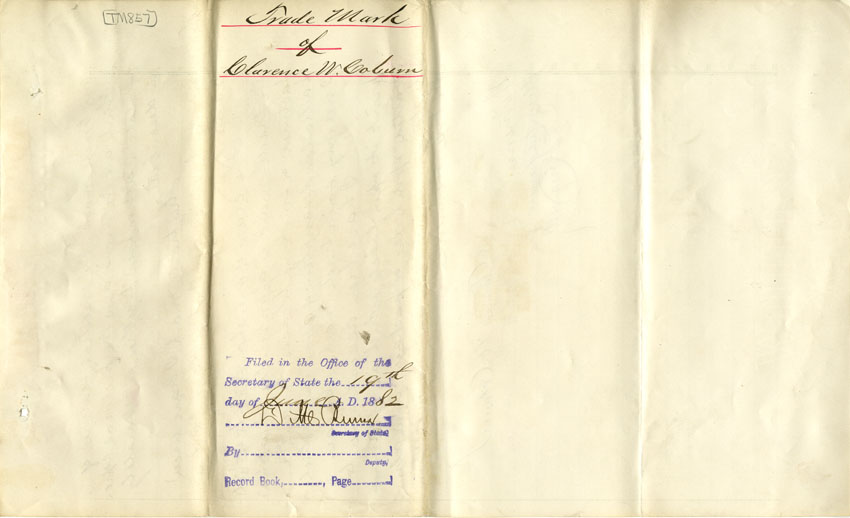 TM857
Trade Mark
of
Clarence W. Coburn
Filed in the Office of the
Secretary of State the 19th
day of June A. D. 1882
Secretary of State,
By
Deputy,
Record Book, , Page